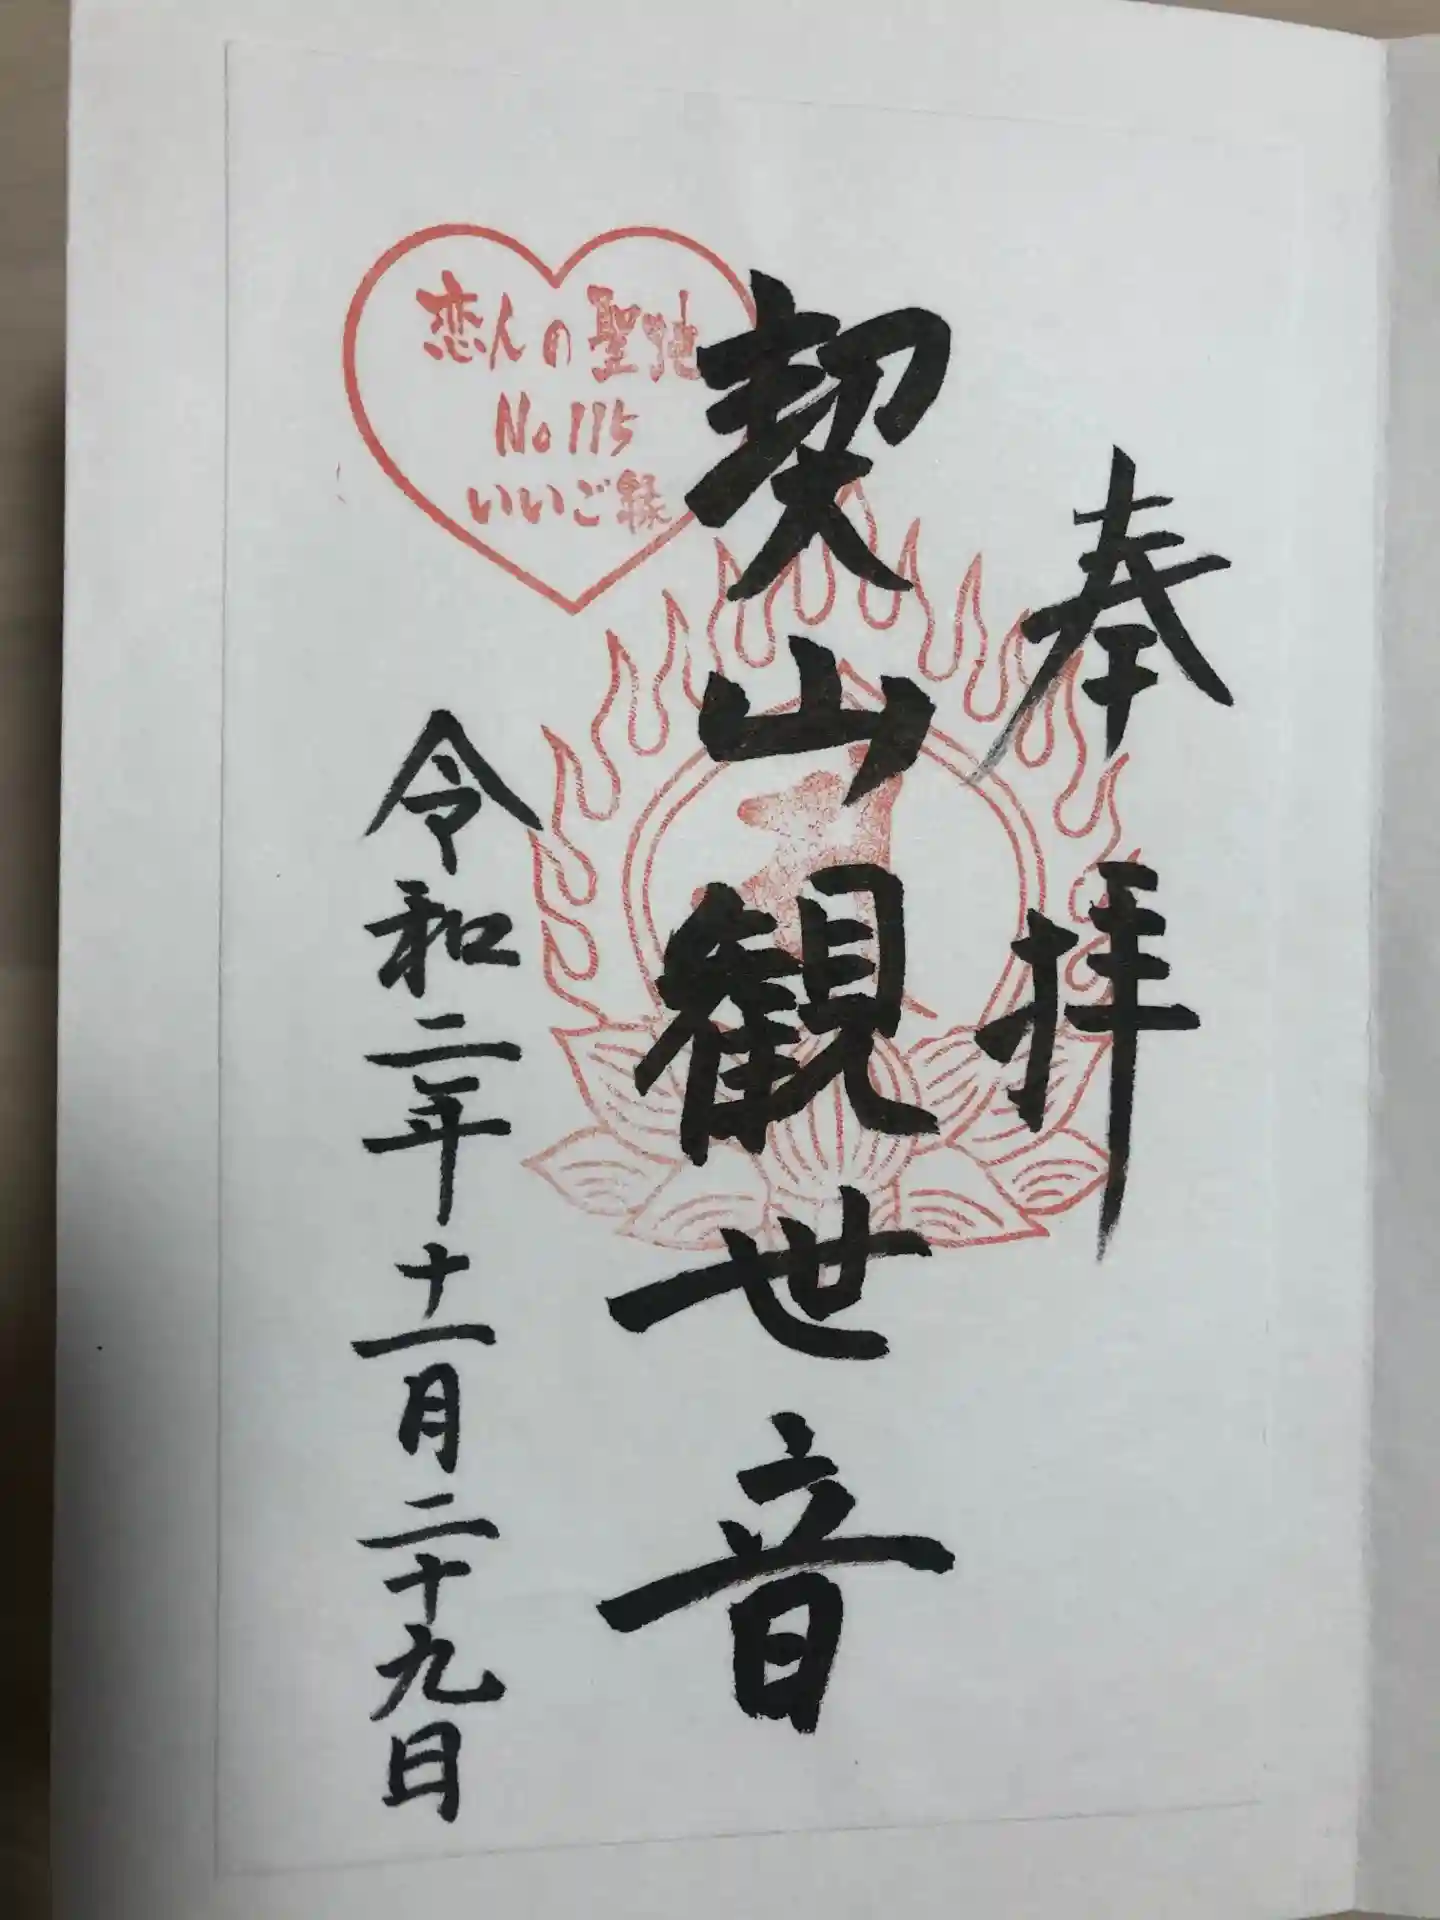 奉拝
契山観世音
恋人の聖地
No115
いいご縁
令和二年十一月二十九日